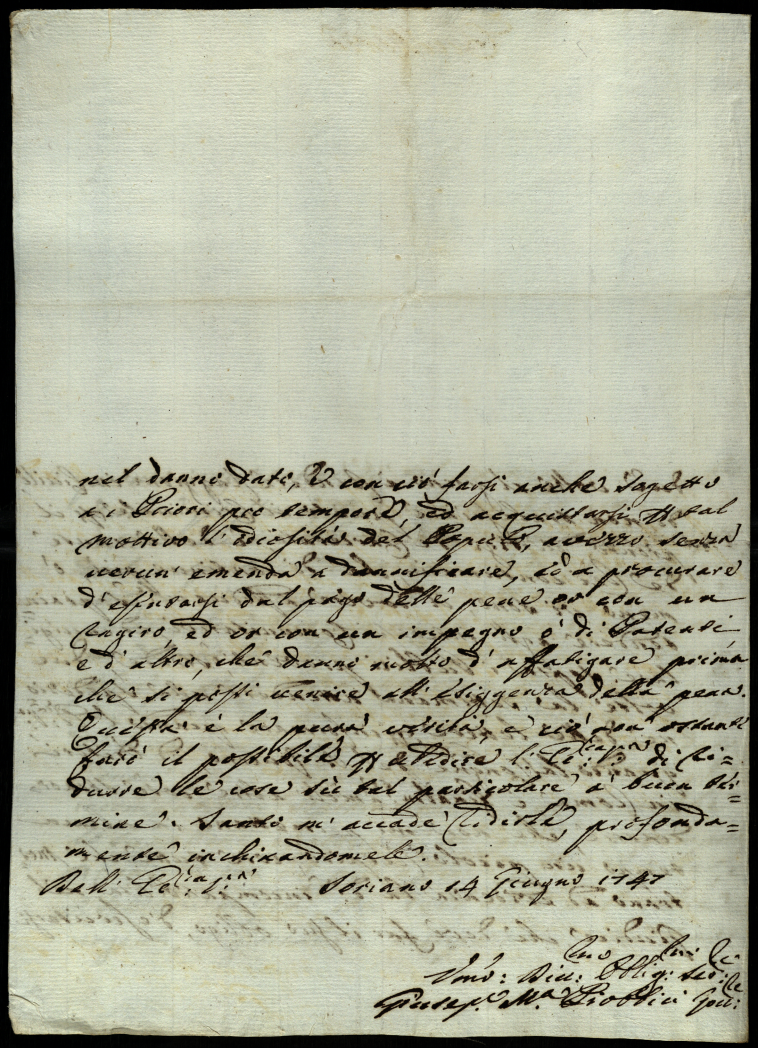 nel danno dato, e con ciò farsi anche sogetto
a i Priori pro tempore, ed acquistarsi p tal
mottivo l'odiosità del Popolo, avezzo senza
verun' emenda a dannificare, ed a procurare
d'esentarsi dal pago delle pene or con un
ragiro, ed or con un impegno ò di Patenti
e d'altro, che danno molto d'affatigare prima
che si possi venire all'esiggenza della pena.
Questa è la pura verità, e ciò non ostante
farò il possibile p obedire l' di ri=
durre le cose sù tal particolare a buon ter=
mine. Tanto m'accade ridirle, profonda=
mente inchinandomele.
Dall' Soriano 14 Giugno 1747
Umo: Obblig: Ser:
Giusep. M.a